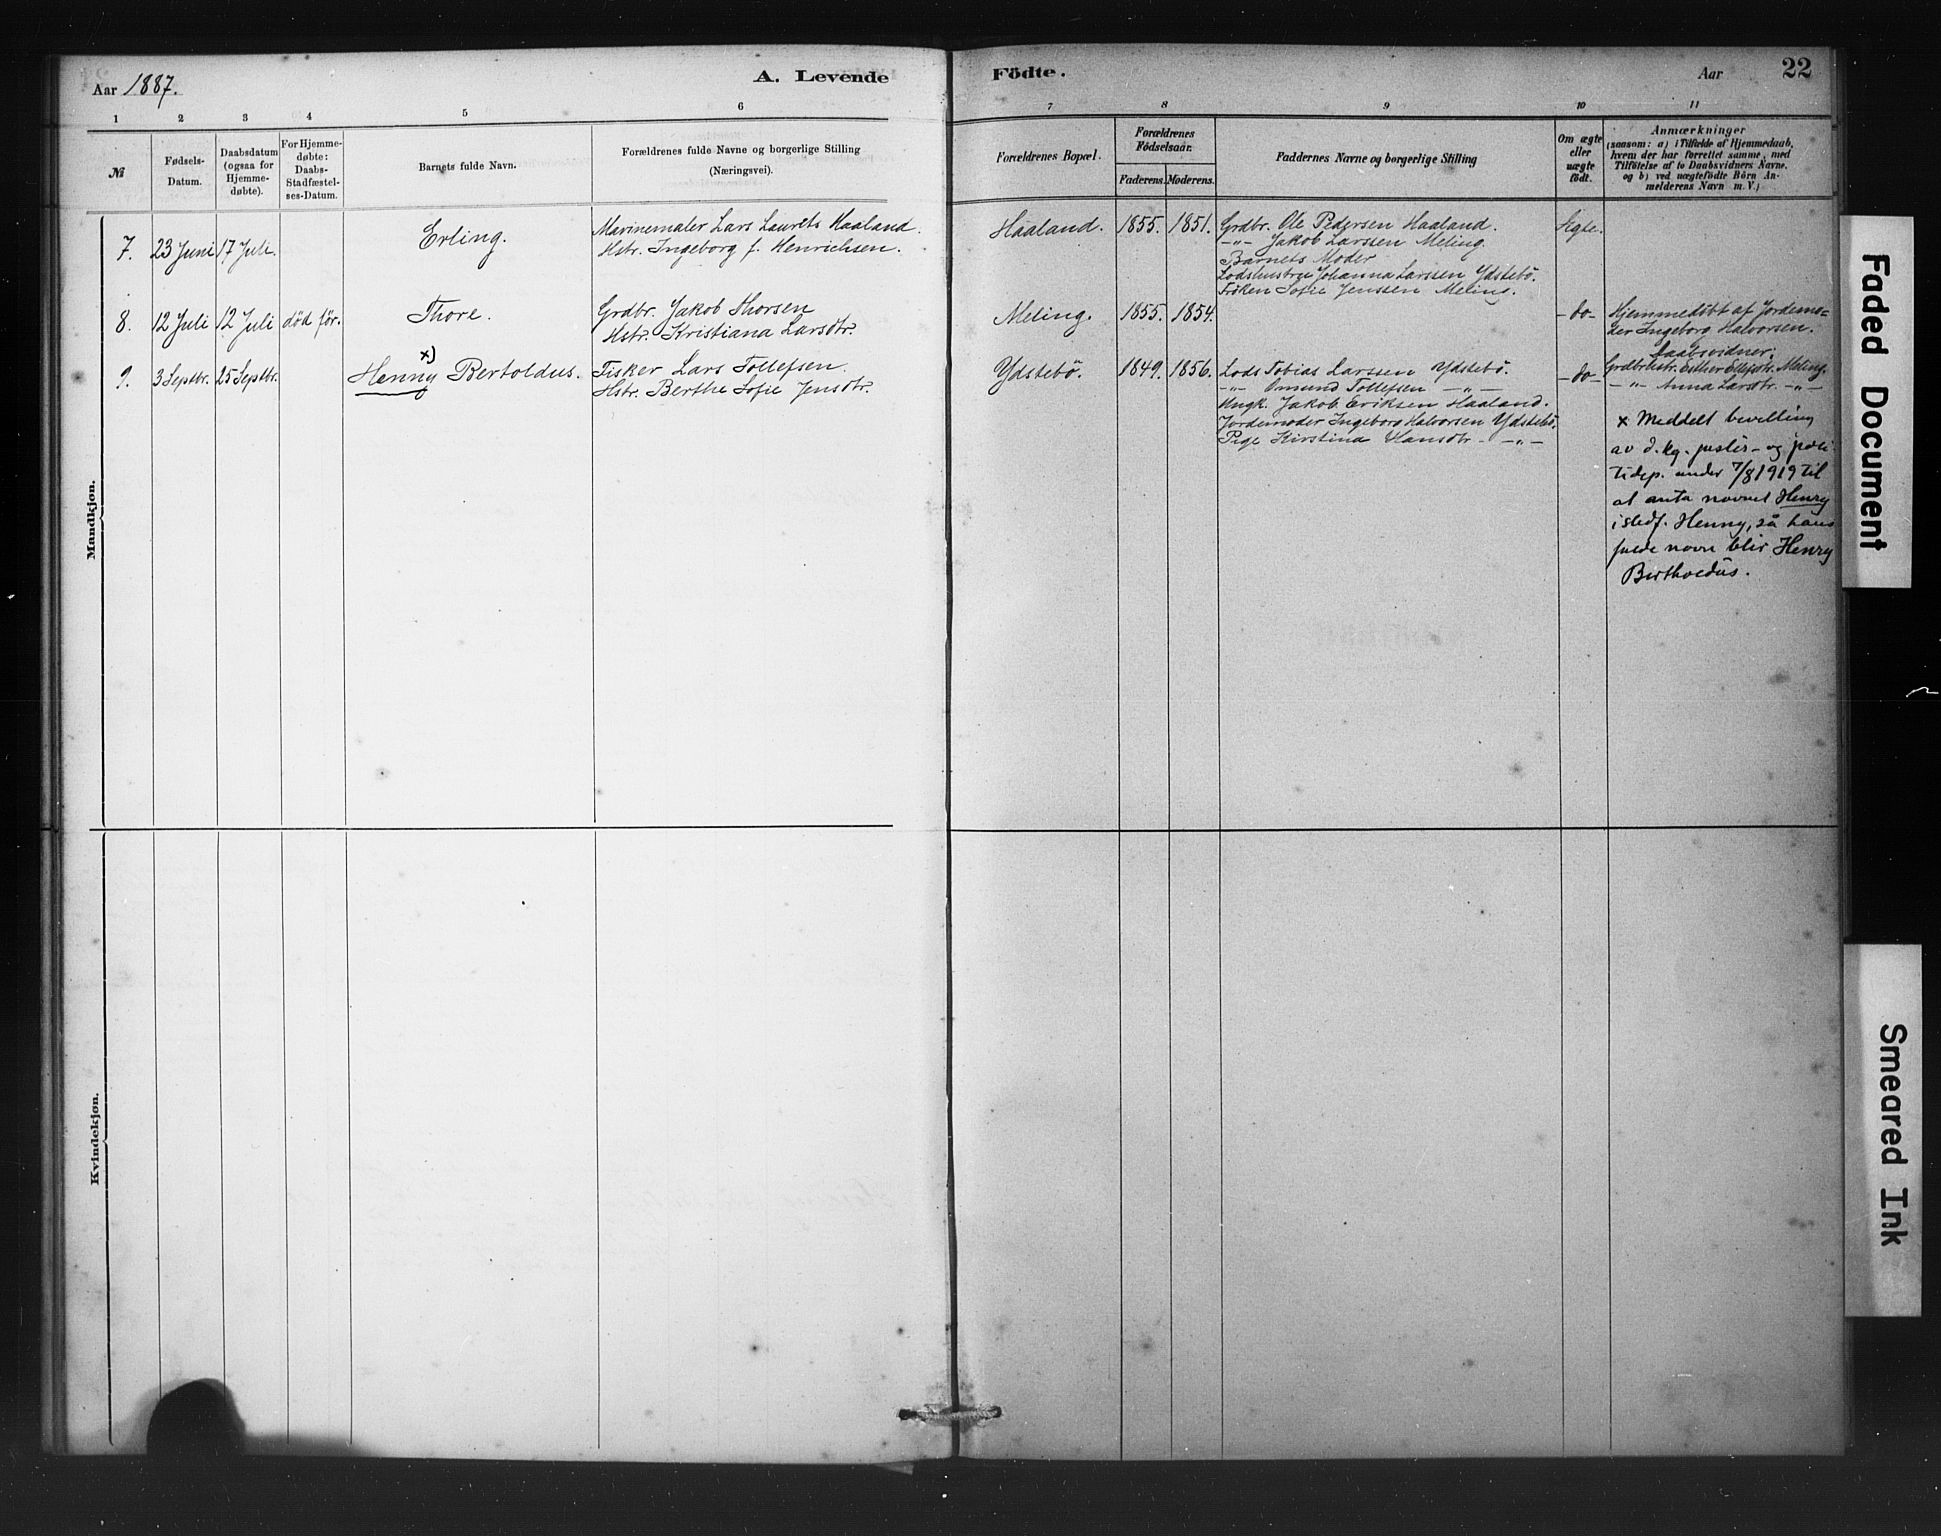 Aar 1887.
A. Levende
Födte.
Aar
22
1 2 3 4 5 6 7 8 9 10 11
№
Fødsels-
Datum.
Daabsdatum
(ogsaa for
Hjemme-
døbte).
For Hjemme-
døbte:
Daabs-
Stadfæstel-
ses-Datum.
Barnets fulde Navn.
Forældrenes fulde Navne og borgerlige Stilling
(Næringsvei).
Forældrenes Bopæl.
Forældrenes
Födselsaar.
Faderens. Moderens.
Faddernes Navne og borgerlige Stilling
Om ægte
eller
uægte
födt.
Anmærkninger
(saasom: a) i Tilfælde af Hjemmedaab,
hvem der har forrettet samme, med
Tilföielse af to Daabsvidners Navne,
og b) ved uægtefödte Börn An-
melderens Navn m. V.)
Mandkjøn.
7. 23 Juni 17 Juli. Erling.
Marinemaler Lars Laurits Haaland.
Hstr. Ingeborg f. Henrichsen.
Haaland. 1855. 1851.
Grdbr. Ole Pedersen Haaland.
-"- Jakob Larssen Meling
Barnets Moder
Lodshustru Johanna Larssen Ydstebö.
Fröken Sofie Jenssen Meling.
Ægte.
8. 12 Juli 12 Juli död för. Thore.
Grdbr. Jakob Thorsen
Hstr. Kristiana Larsdtr.
Meling. 1855. 1854.
-do-
Hjemmedöbt af Jordemo-
der Ingeborg Halvorsen.
Daabsvidner:
Grdbrhstr. Esther Meling.
-"- Anna Larsdtr. -"-
9. 3 Septbr. 25 Septbr. Henny x) Bertoldus.
Fisker Lars Tollefsen.
Hstr. Berthe Sofie Jensdtr.
Ydstebö. 1849. 1856.
Lods Tobias Larssen Ydstebö.
-"- Omund Tollefsen -"-
Ungk. Jakob Eriksen Haaland.
Jordemoder Ingeborg Halvorsen Ydstebö.
Pige Kirstina Hansdtr. -"-
-do-
x Meddelt bevilling
av d. kg. justis- og poli-
tidep. under 7/8 1919 til
at anta navnet Henry
istedf. Henny, så hans
fulde navn blir Henry
Bertholdus.
Kvindekjøn.
Faded Document
Smeared Ink